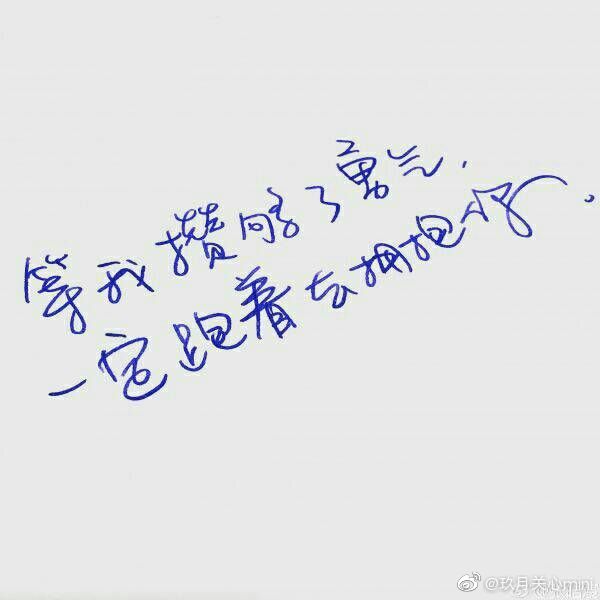 等我攒够了勇气.
一定跑着去拥抱你.
@玖月关心mini